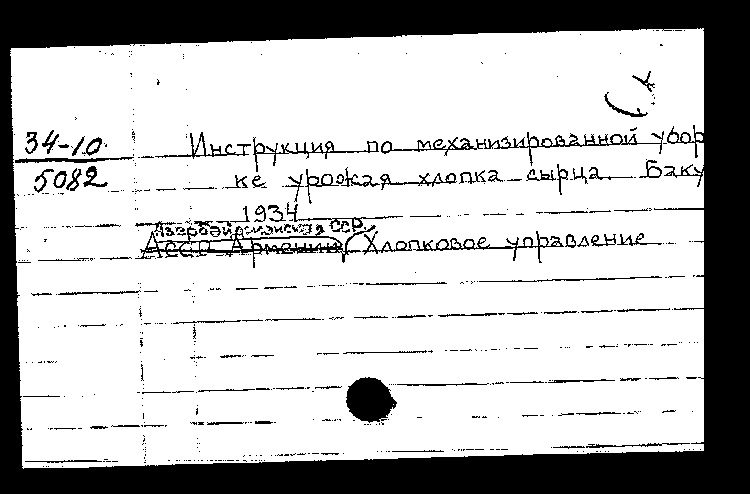 34-10
5082
Инструкция по механизированной убор
ке урожая хлопка сырца. Баку
1934
Азербайджанская ССР.
Асср Армении Хлопковое управление